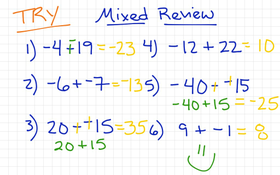 TRY Mixed Review
1) -4 - 19 = -23 4) -12 + 22 = 10
2) -6 + -7 = -13 5) -40 - -15
-40 + 15 = -25
3) 20 - -15 = 35 6) 9 + -1 = 8
20 + 15